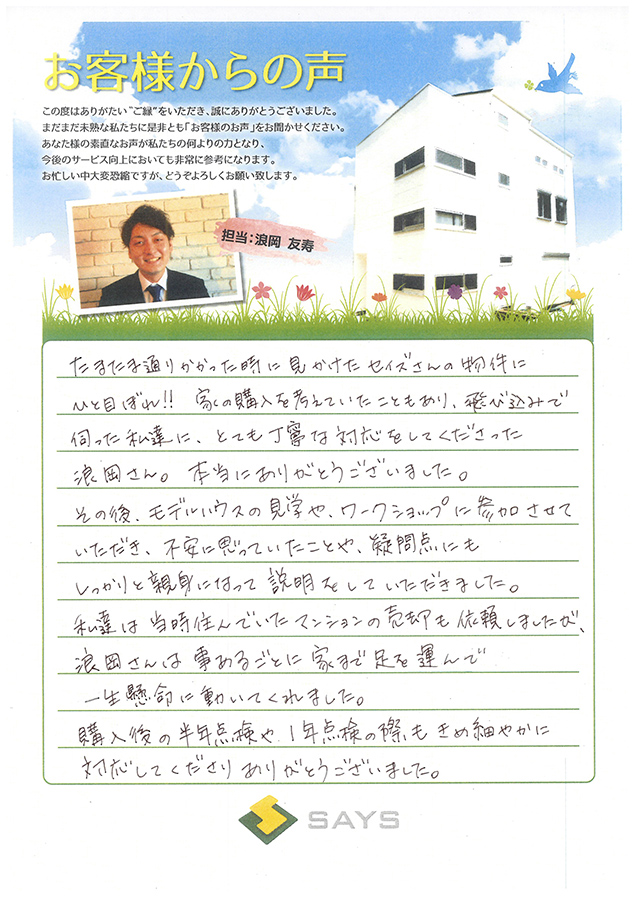 お客様からの声
この度はありがたい“ご縁”をいただき、誠にありがとうございました。
まだまだ未熟な私たちに是非とも「お客様のお声」をお聞かせください。
あなた様の素直なお声が私たちの何よりの力となり、
今後のサービス向上においても非常に参考になります。
お忙しい中大変恐縮ですが、どうぞよろしくお願い致します。
担当：浪岡 友寿
たまたま通りかかった時に見かけたセイズさんの物件に
ひと目ぼれ!! 家の購入を考えていたこともあり、飛び込みで
伺った私達に、とても丁寧な対応をしてくださった
浪岡さん。本当にありがとうございました。
その後、モデルハウスの見学や、ワークショップに参加させて
いただき、不安に思っていたことや、疑問点にも
しっかりと親身になって説明をしていただきました。
私達は当時住んでいたマンションの売却も依頼しましたが、
浪岡さんは事あるごとに家まで足を運んで
一生懸命に動いてくれました。
購入後の半年点検や、1年点検の際もきめ細やかに
対応してくださりありがとうございました。
SAYS